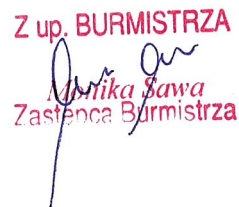 Z up. BURMISTRZA
Monika Sawa
Zastępca Burmistrza